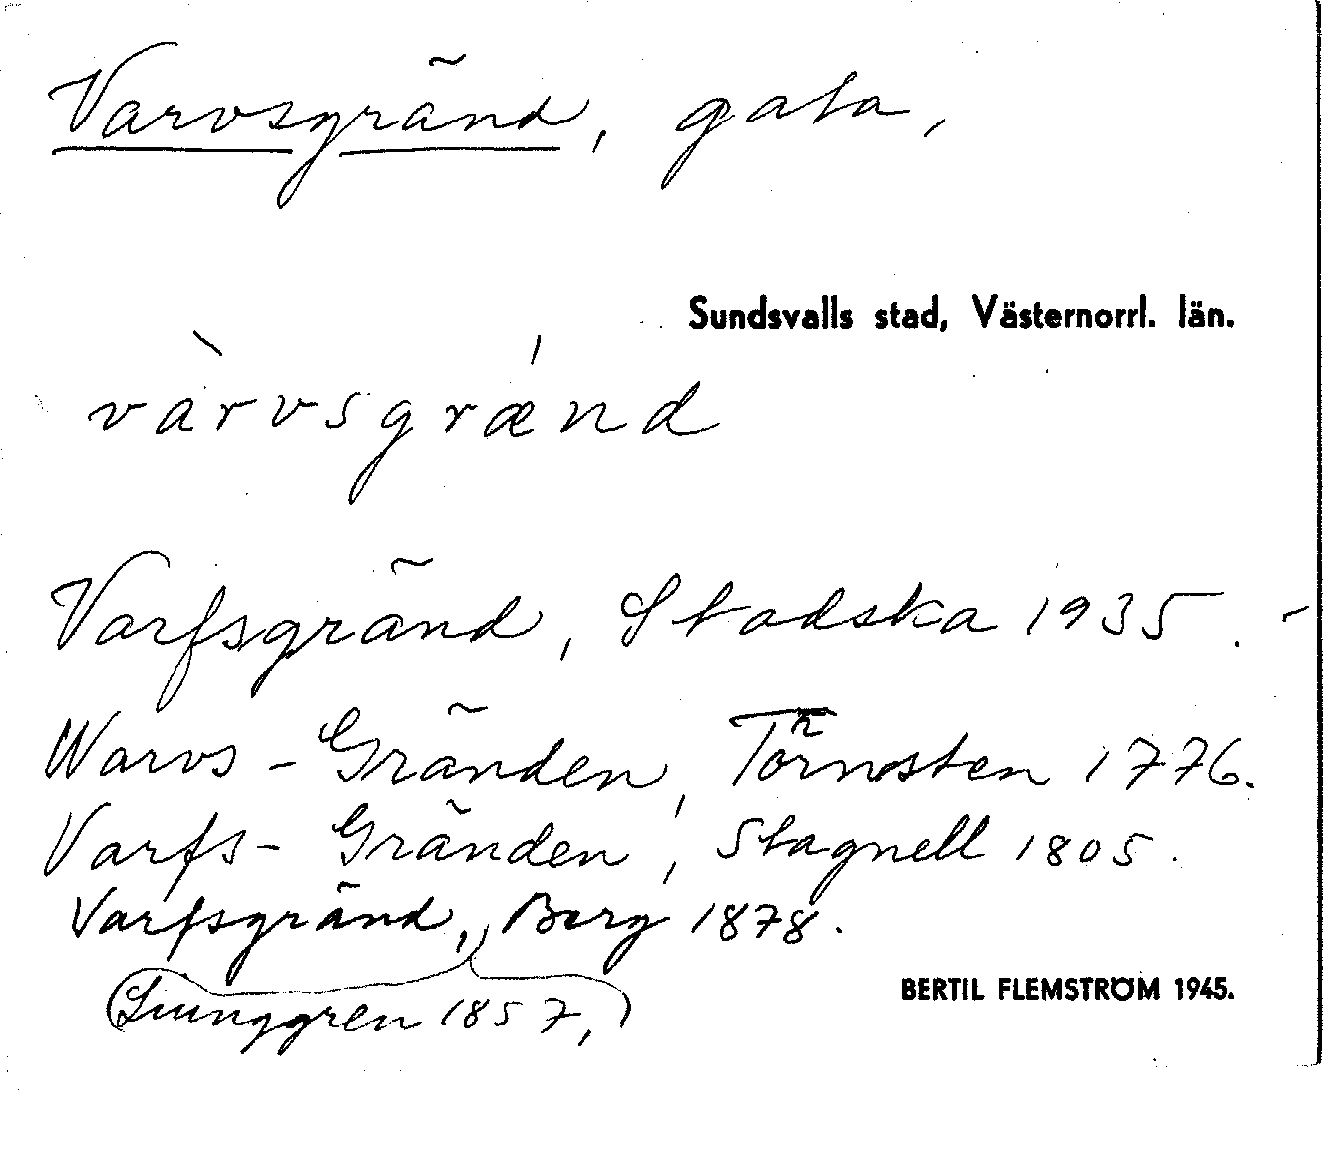 Varvsgränd, gata,
Sundsvalls stad, Västernorrl. län.
vàrvsgrǽnd
Varfsgränd, Stadska 1935. -
Warvs-Gränden, Törnsten 1776.
Varfs-Gränden, Stagnell 1805.
Varfsgränd, Berg 1878.
(Liunggren 1857,)
BERTIL FLEMSTRÖM 1945.